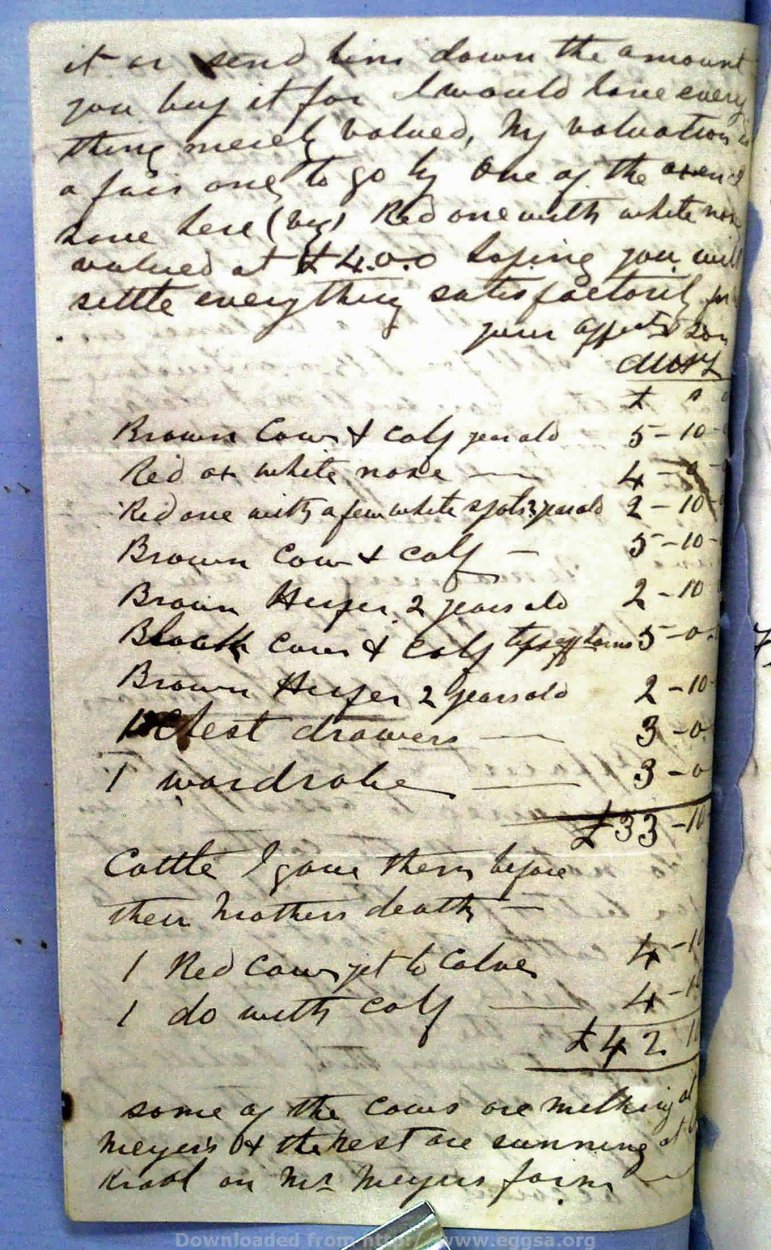 it or send him down the amount
you buy it for I would have every
thing merely valued, My valuation is
a fair one, to go by One of the oxen I
have here (by) Red one with white nose
valued at £4.0.0 hoping you will
settle everything satisfactorily for
your affect son
£ s
Brown Cow & calf year old 5-10-
Red ox white nose — 4-0-
Red one with a few white spots 3 years old 2-10
Brown Cow & calf — 5-10-
Brown Heifer 2 years old 2-10
Black Cow & Calf tips off horns 5-0-
Brown Heifer 2 years old 2-10-
1 Chest drawers — 3-0-
1 wardrobe — 3-0
£33-10
Cattle I gave them before
their Mothers death —
1 Red Cow yet to Calve 4-10
1 do with calf — 4-10
£42 10
some of the Cows are milking at
Meyers & the rest are running at
Kraal on Mr Meyers farm —
Downloaded from http://www.eggsa.org